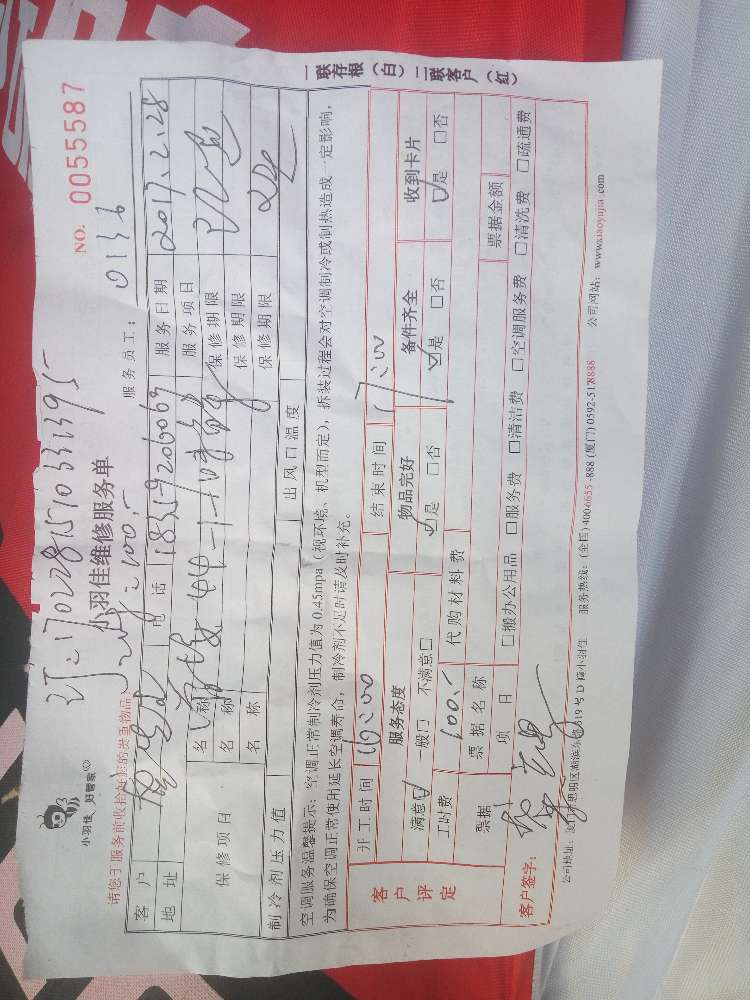 小羽佳 好管家
NO. 0055587
订:170228151033395
小羽佳维修服务单
服务员工: 0136
请您于服务前收拾好您的贵重物品
客户
电话 18359206069
服务日期 2017.2.28
地址
服务项目
保修项目
名称
保修期限
名称
保修期限
名称
保修期限
制冷剂压力值
出风口温度
空调服务温馨提示:空调正常制冷剂压力值为0.45mpa(视环境、机型而定),拆装过程会对空调制冷或制热造成一定影响,
为确保空调正常使用延长空调寿命,制冷剂不足时请及时补充。
开工时间 16:00
结束时间 17:00
客户评定
服务态度
物品完好
备件齐全
收到卡片
满意☑ 一般□ 不满意□
☑是 □否
☑是 □否
☑是 □否
工时费 100.-
代购材料费
票据
票据名称
票据金额
项目
□搬办公用品 □服务费 □清洁费 □空调服务费 □清洗费 □疏通费
客户签字:
服务热线:(全国)4006655-888 (厦门)0592-5178888
公司网站:www.xiaoyujia.com
一联存根(白)二联客户(红)